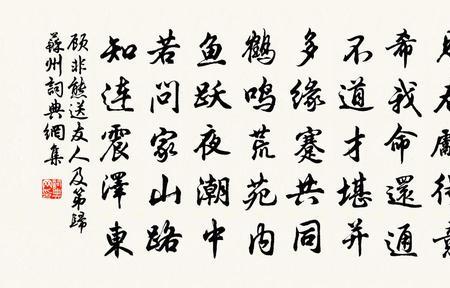 見君處得意
希我命還通
不道才堪并
多緣蹇共同
鶴鸣荒苑內
鱼跃夜潮中
若问家山路
知连震澤東
顾非熊送友人及第歸
蘇州詞典網集